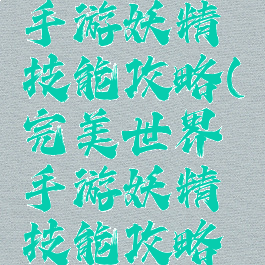 手游妖精
技能攻略(
完美世界
手游妖精
技能攻略